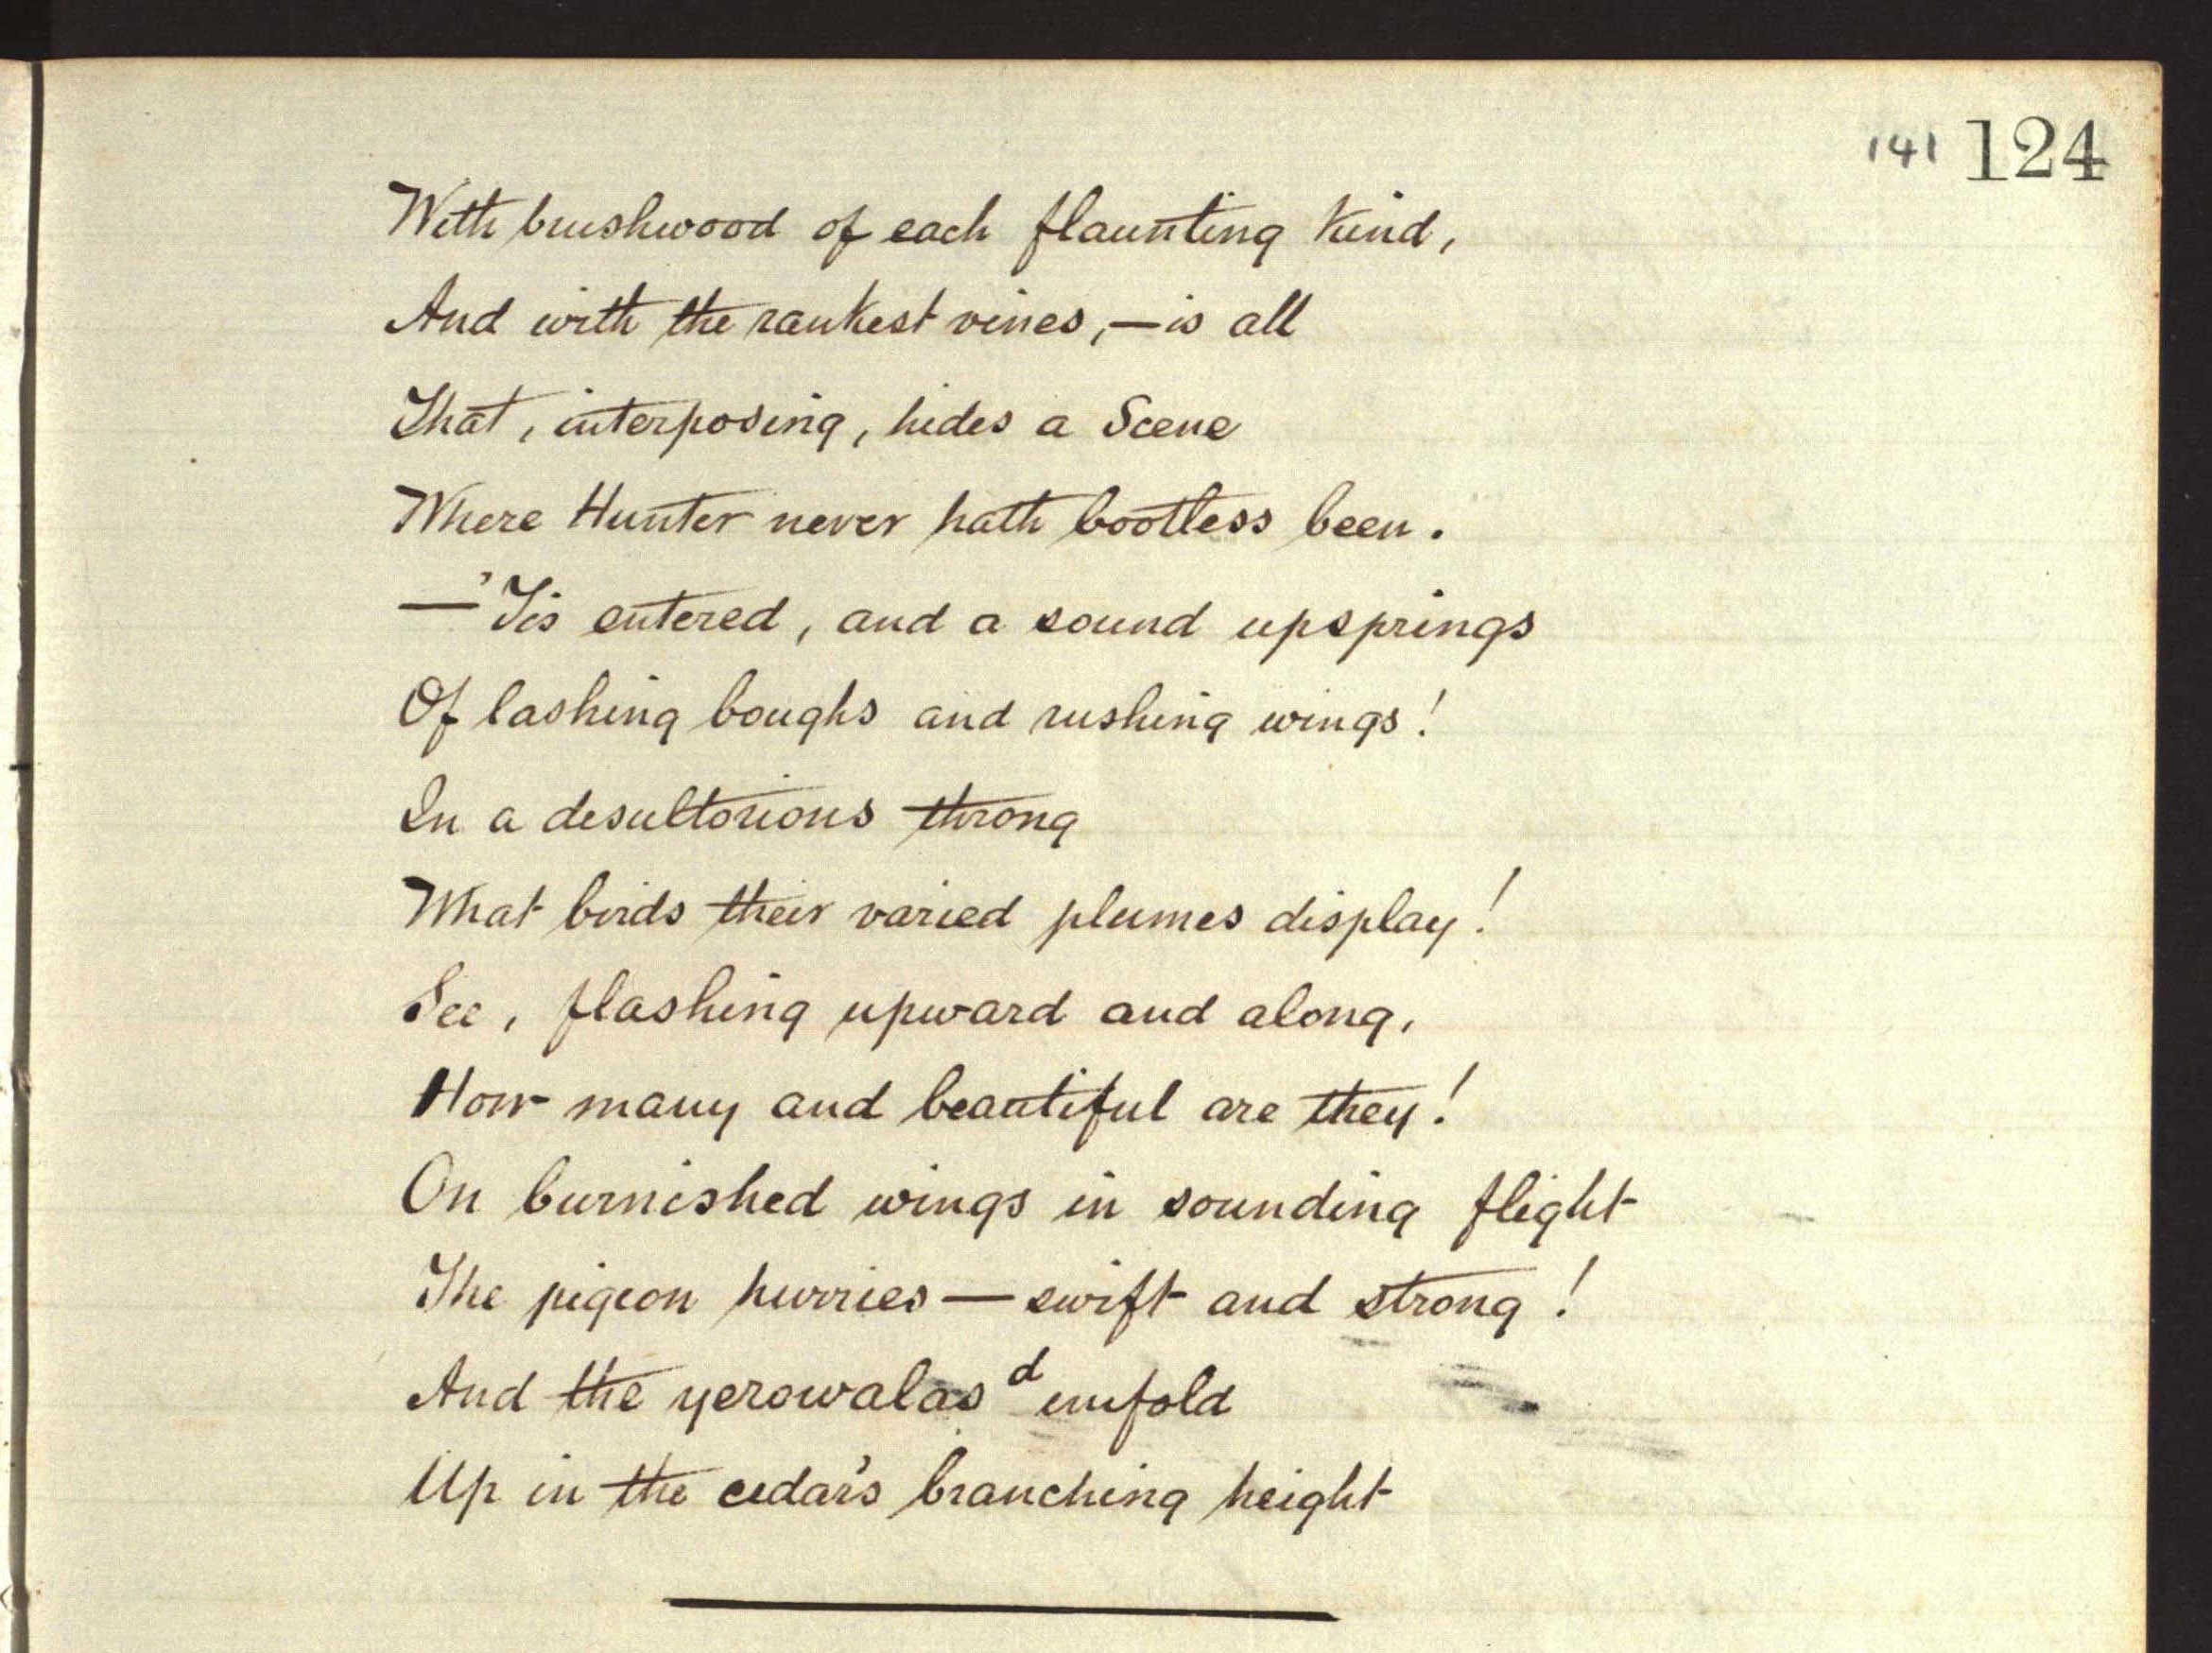 141 124
With brushwood of each flaunting kind,
And with the rankest vines,—is all
That, interposing, hides a Scene
Where Hunter never hath bootless been.
—'Tis entered, and a sound upsprings
Of lashing boughs and rushing wings!
In a desultorious throng
What birds their varied plumes display!
See, flashing upward and along,
How many and beautiful are they!
On burnished wings in sounding flight
The pigeon hurries—swift and strong!
And the yerowalas d unfold
Up in the cedar's branching height